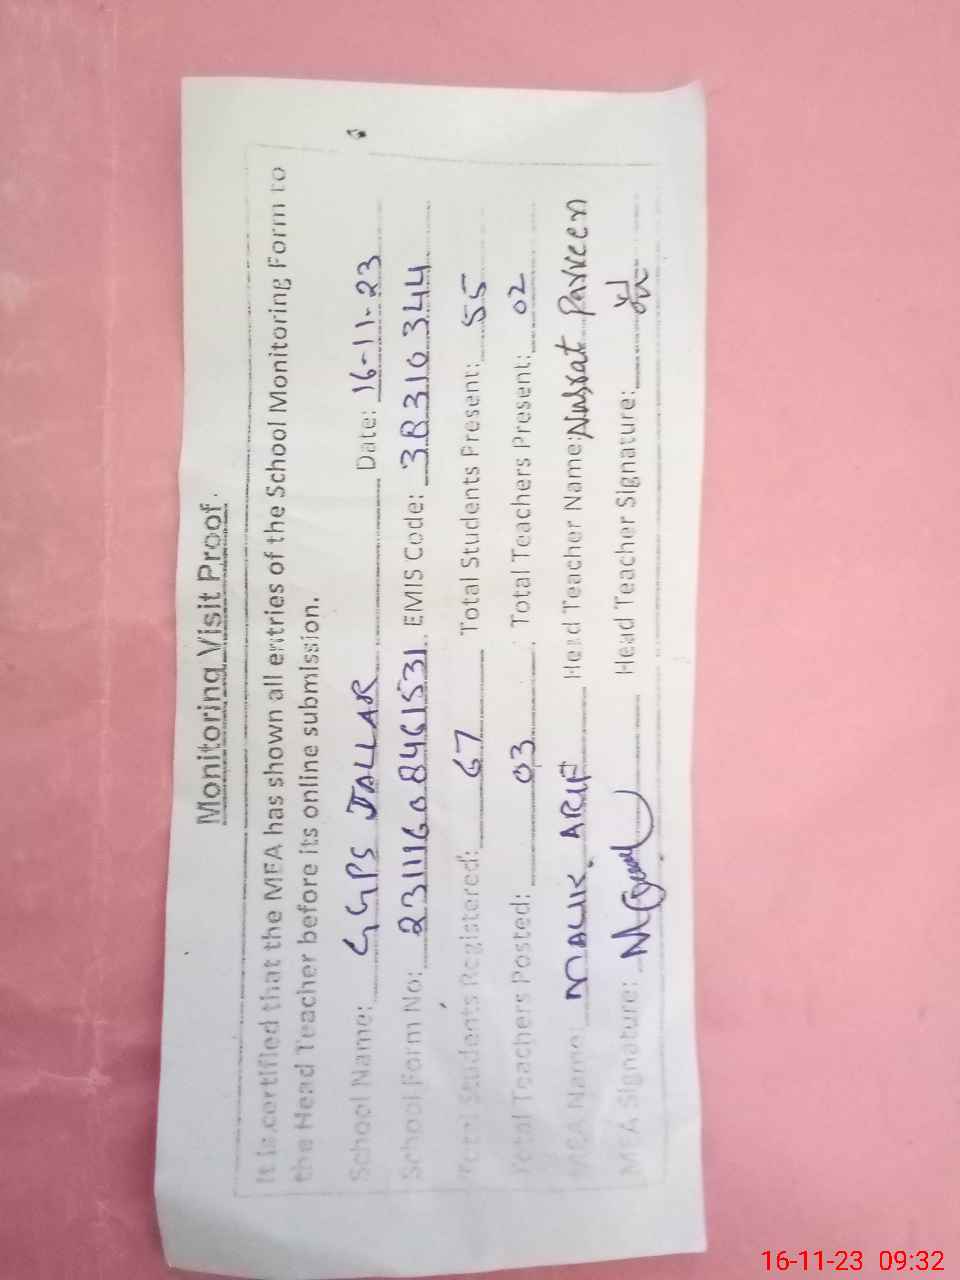 Monitoring Visit Proof.
It is certified that the MEA has shown all entries of the School Monitoring Form to
the Head Teacher before its online submission.
School Name: GGPS JALLAR Date: 16-11-23
School Form No: 23111608461531 EMIS Code: 38310344
Total Students Registered: 67 Total Students Present: 55
Total Teachers Posted: 03 Total Teachers Present: 02
MEA Name: MALIK ARIF Head Teacher Name: Nusrat Parveen
MEA Signature: Head Teacher Signature:
16-11-23 09:32